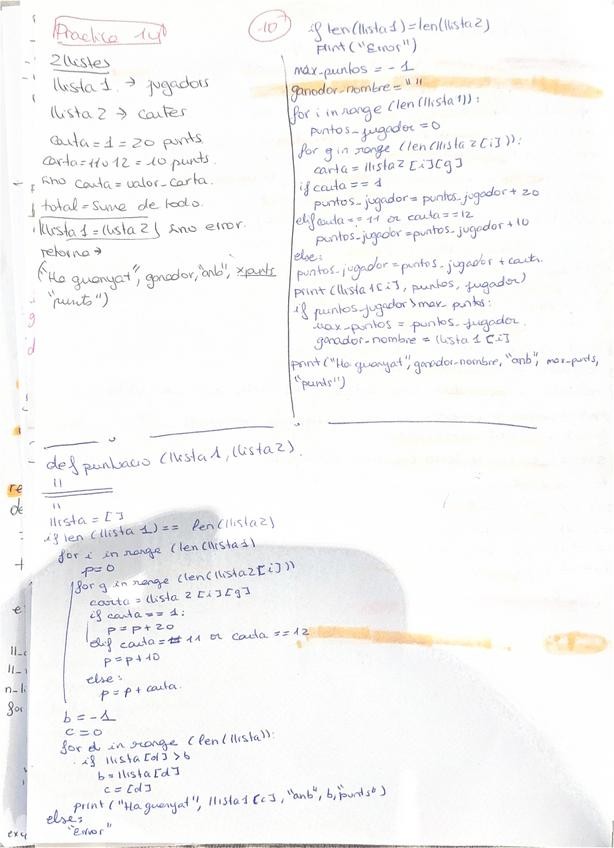 Practica 14
2 llistes
llista 1 → jugadors
llista 2 → cartes
carta = 1 = 20 punts
carta = 11 o 12 = 10 punts.
sino carta = valor-carta.
total = suma de todo.
llista 1 = llista 2 sino error.
retorno →
("Ha guanyat", ganador, "anb", xpunts
"punts")
10
if len(llista1) = len(llista2)
print("Error")
max-puntos = -1
ganador-nombre = " "
for i in range (len(llista1)):
puntos-jugador = 0
for g in range (len(llista2[i])):
carta = llista2[i][g]
if carta == 1
puntos-jugador = puntos-jugador + 20
elif carta == 11 or carta == 12
puntos-jugador = puntos-jugador + 10
else:
puntos-jugador = puntos-jugador + carta.
print (llista1[i], puntos, jugador)
if puntos-jugador > max-puntos:
max-puntos = puntos-jugador.
ganador-nombre = llista1[i]
print("Ha guanyat", ganador-nombre, "anb", max-punts,
"punts")
def puntuacio (llista1, llista2).
"
"
llista = []
if len (llista 1) == len(llista2)
for i in range (len(llista1)
p=0
for g in range (len(llista2[i]))
carta = llista 2 [i][g]
if carta == 1:
p = p+20
elif carta = 11 or carta == 12
p = p+10
else:
p = p + carta.
b = -1
c = 0
for d in range (len(llista)):
if llista[d] > b
b = llista[d]
c = [d]
print ("Ha guanyat", llista1[c], "anb", b, "punts")
else:
"Error"
re
de
e
ll-
ll-
n-li
for